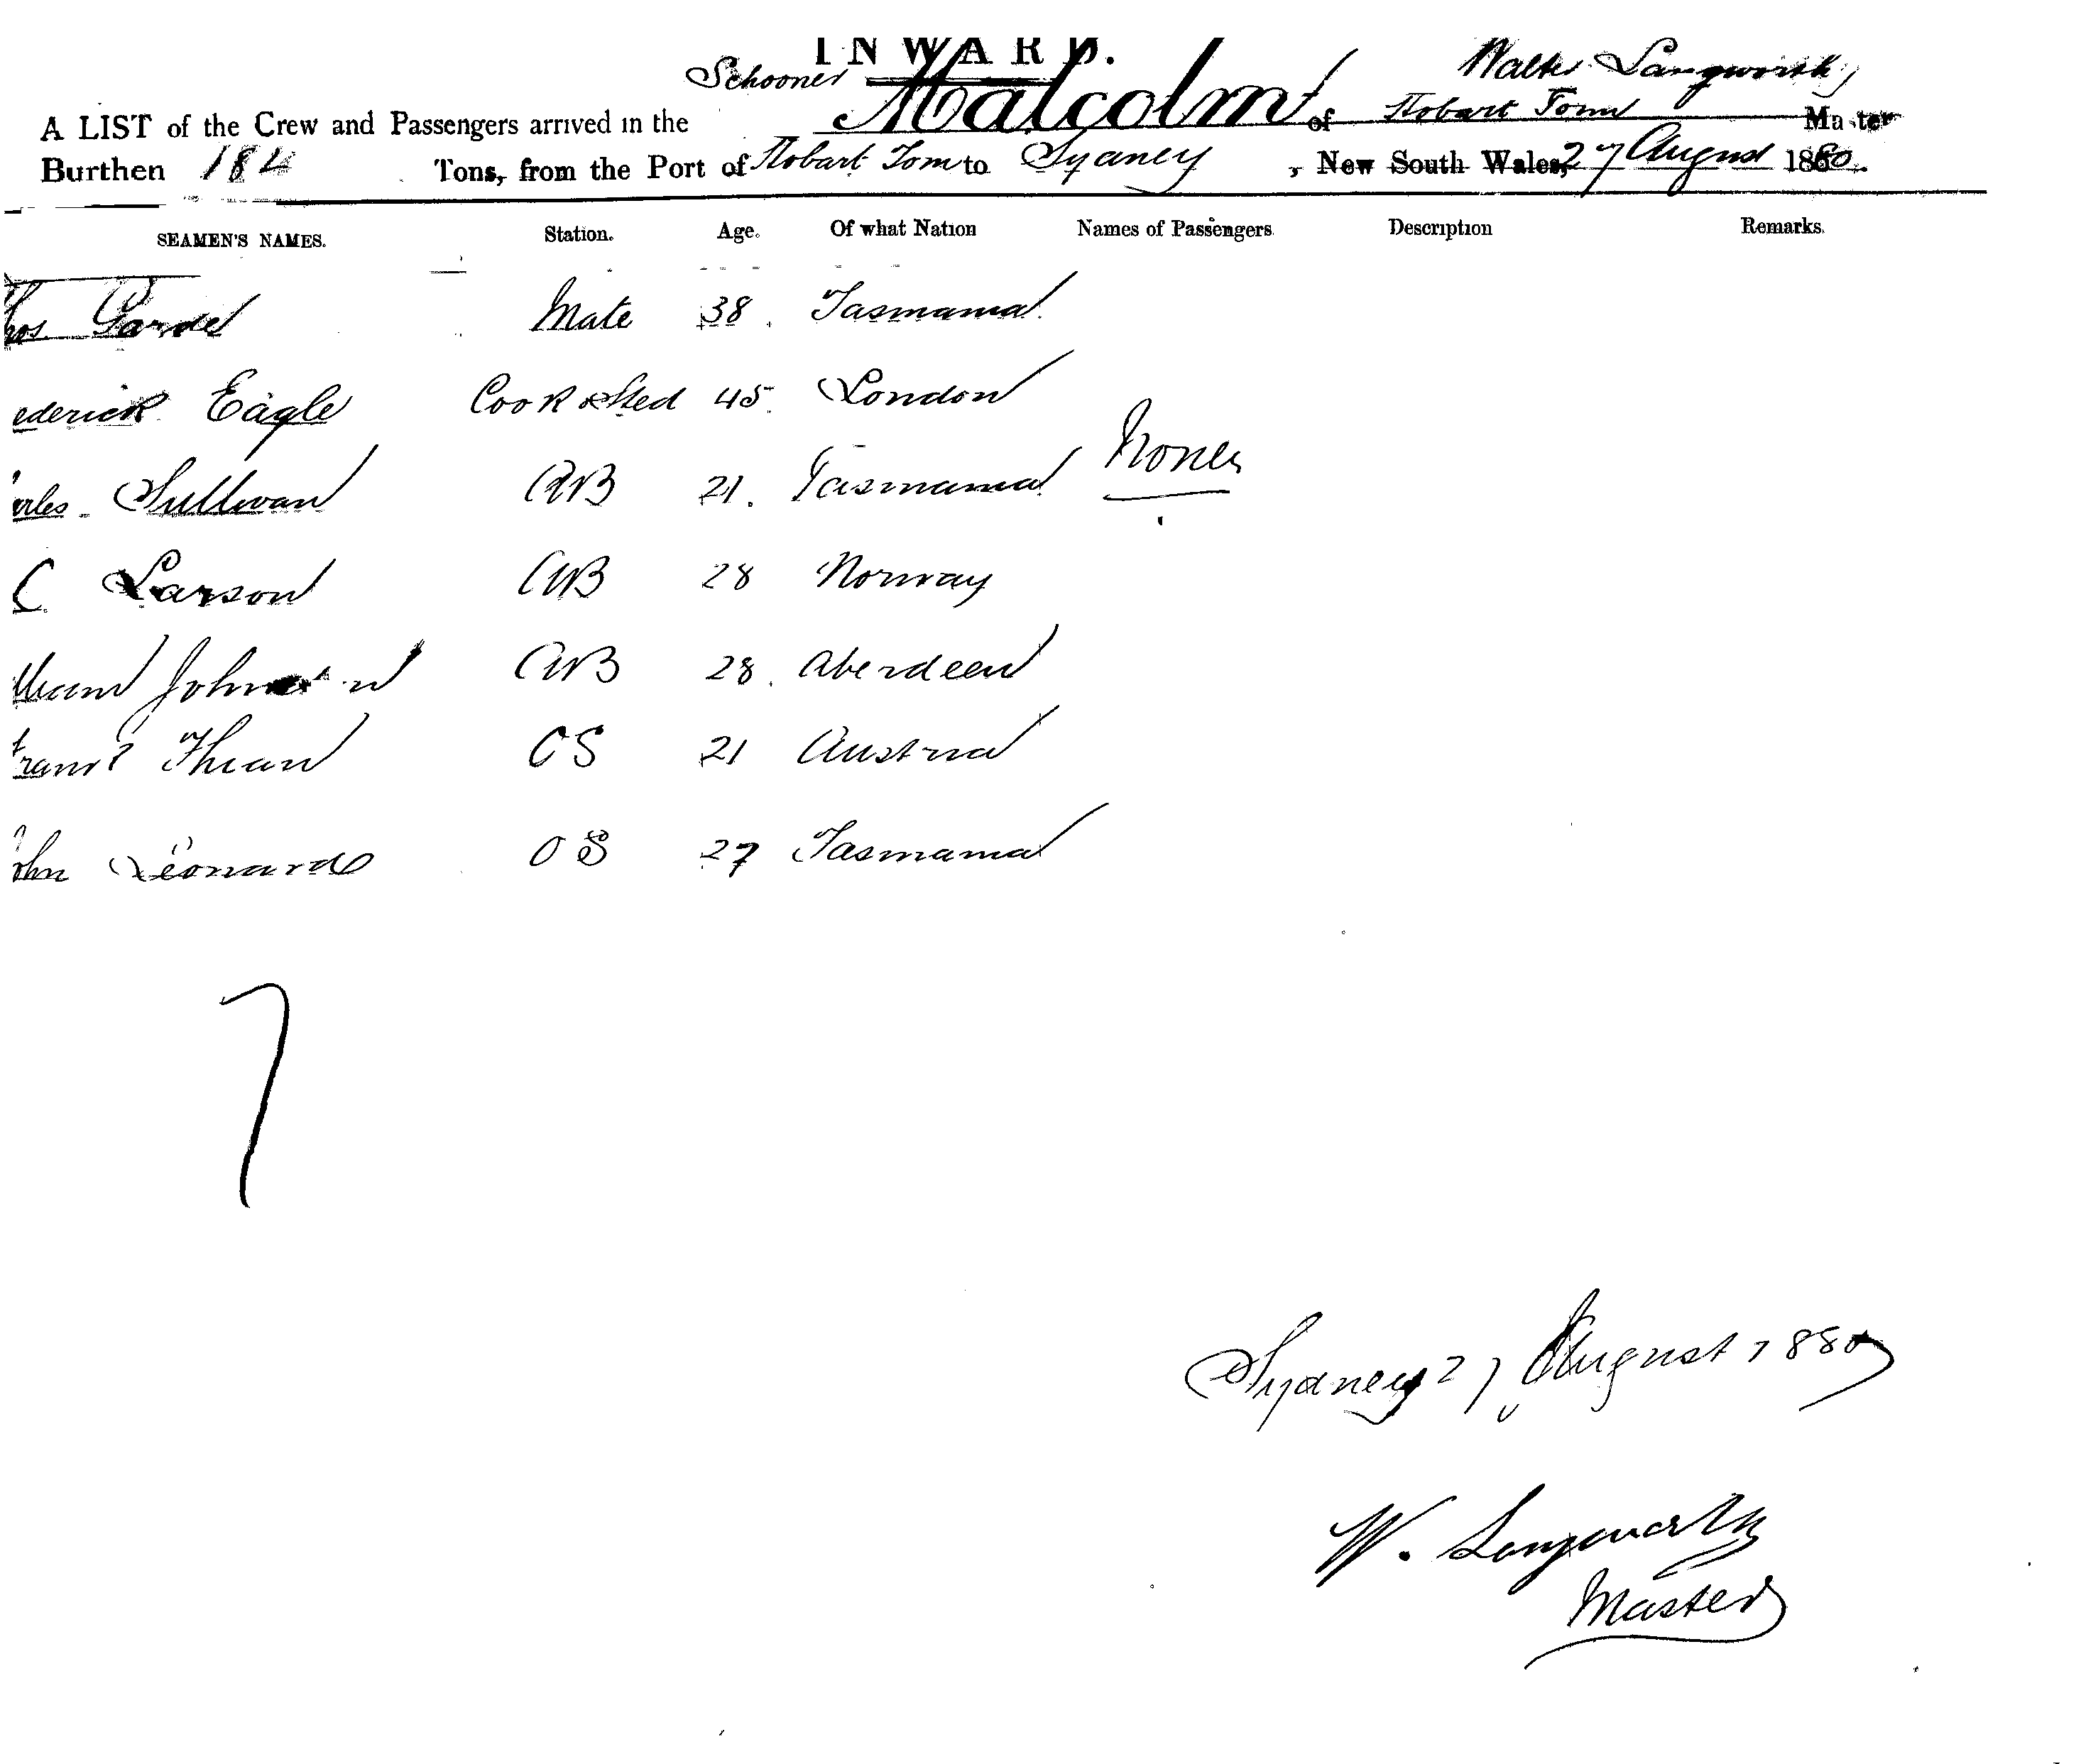 INWARD.
Schooner Walter Langworthy
A LIST of the Crew and Passengers arrived in the Malcolm of Hobart Town Master
Burthen 184 Tons, from the Port of Hobart Town to Sydney, New South Wales, 27 August 1880.
SEAMEN'S NAMES. Station. Age. Of what Nation Names of Passengers. Description Remarks.
hos Mate 38. Tasmania
ederick Eagle Cook & Sted 45. London
None
arles Sullivan AB 21. Tasmania
C Larson AB 28 Norway
lliam Johnson AB 28. Aberdeen
OS 21 Austria
ohn Leonard OS 27 Tasmania
7
Sydney 27 August 1880
W. Langworthy
Master